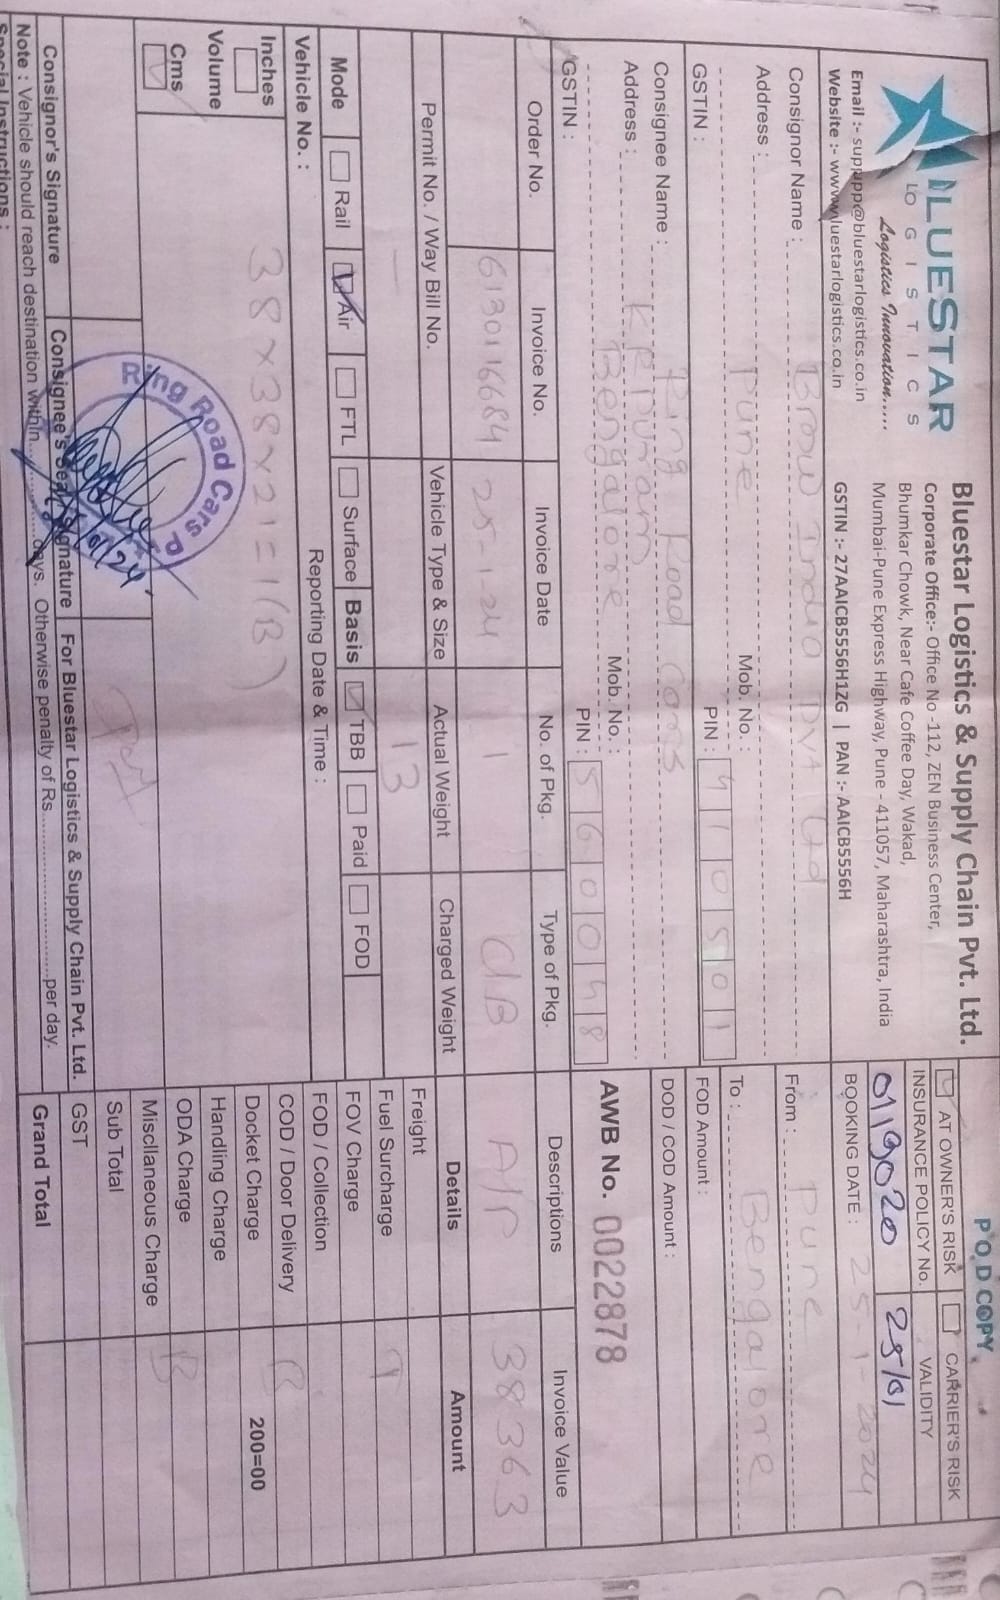 P O D COPY
BLUESTAR
LOGISTICS
Logistics Innovation.....
Email :- suppupp@bluestarlogistics.co.in
Website :- www.luestarlogistics.co.in
Bluestar Logistics & Supply Chain Pvt. Ltd.
Corporate Office:- Office No -112, ZEN Business Center,
Bhumkar Chowk, Near Cafe Coffee Day, Wakad,
Mumbai-Pune Express Highway, Pune - 411057, Maharashtra, India
GSTIN :- 27AAICB5556H1ZG | PAN :- AAICB5556H
AT OWNER'S RISK CARRIER'S RISK
INSURANCE POLICY No. VALIDITY
0119020 25/01
BOOKING DATE : 25-1-2024
Consignor Name : India Pvt Ltd
Address :
Pune Mob. No. :
GSTIN : PIN : 410501
From : Pune
To : Bengalore
FOD Amount :
DOD / COD Amount :
Consignee Name : Ring Road Cars
Address : KRPuram
Bengalore Mob. No. :
GSTIN : PIN : 560048
AWB No. 0022878
Order No. Invoice No. Invoice Date No. of Pkg. Type of Pkg. Descriptions Invoice Value
6130116684 25-1-24 1 C/B A/P 38363
Permit No. / Way Bill No. Vehicle Type & Size Actual Weight Charged Weight
— 13
Mode Rail Air FTL Surface Basis TBB Paid FOD
Vehicle No. : Reporting Date & Time :
Inches
Volume
Cms
38×38×21=1(B)
Details Amount
Freight
Fuel Surcharge T
FOV Charge
FOD / Collection
COD / Door Delivery B
Docket Charge 200=00
Handling Charge
ODA Charge B
Miscllaneous Charge
Sub Total
GST
Grand Total
Ring Road Cars P
Consignor's Signature Consignee's Seal Signature For Bluestar Logistics & Supply Chain Pvt. Ltd.
Note : Vehicle should reach destination within...............days. Otherwise penalty of Rs.............................per day.
Special Instructions :